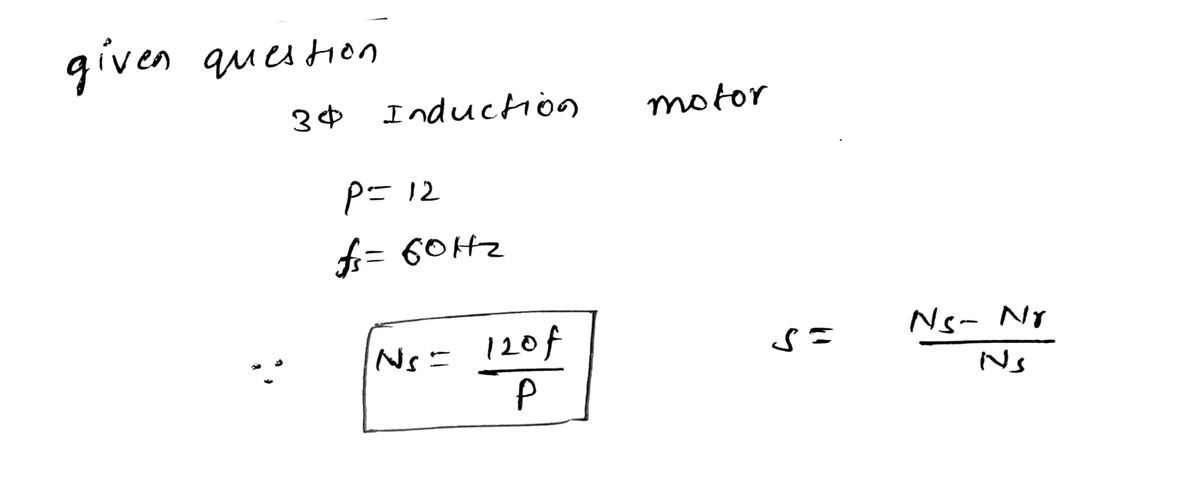 given question
3ϕ Induction motor
P= 12
fs= 60Hz
∵ Ns = 120f / P s = Ns- Nr / Ns